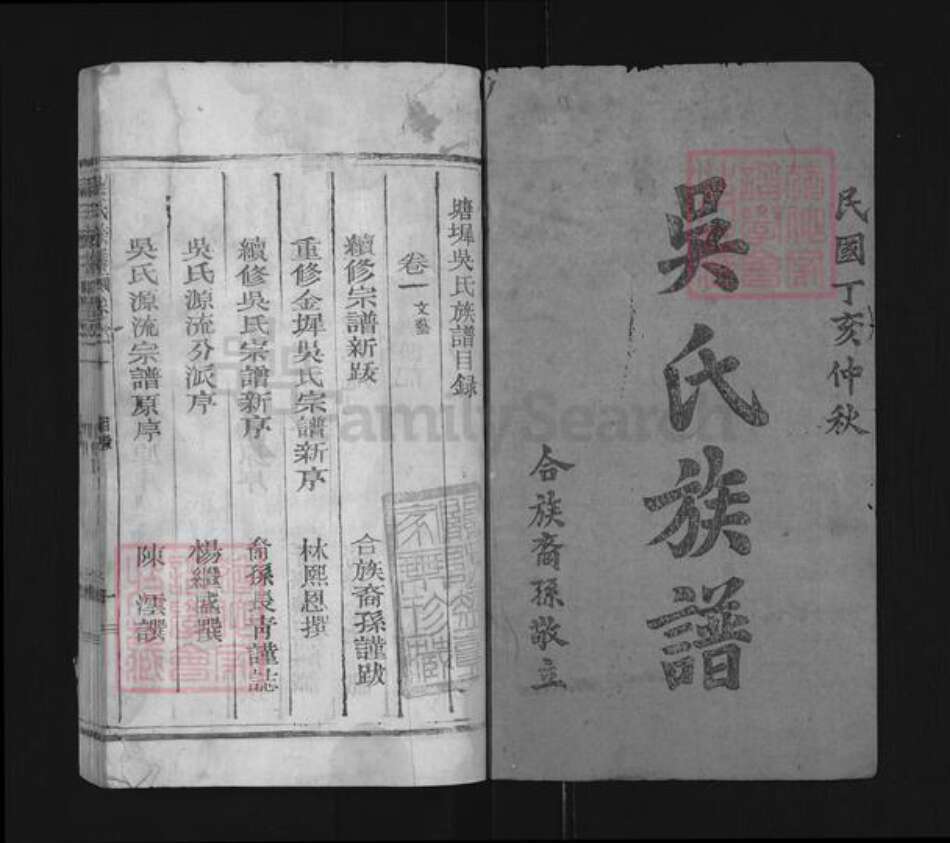 民國丁亥仲秋
吳氏族譜
合族裔孫敬立
塘墀吳氏族譜目錄
卷一 文藝
續修宗譜新跋 合族裔孫謹跋
重修金墀吳氏宗譜新序 林熙恩撰
續修吳氏宗譜新序 裔孫長青謹誌
吳氏源流分派序 楊繼盛撰
吳氏源流宗譜原序 陳澐譔
FamilySearch